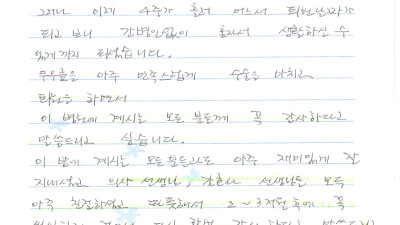 그러나 이제 4주가 흘러 어느새 퇴원날짜가
되고 보니 간병인없이 혼자서 생활하실 수
있게까지 되셨습니다.
두무릎을 아주 만족스럽게 수술을 마치고
퇴원을 하면서
이 병원에 계시는 모든 분들께 꼭 감사하다고
말씀드리고 싶습니다.
이 방에 계시는 모든분들과도 아주 재미있게 잘
지내셨고 의사 선생님, 간호사 선생님들 모두
아주 친절하셨고 만족해서 2~3개월후에 꼭
다시 한번 감사하다고